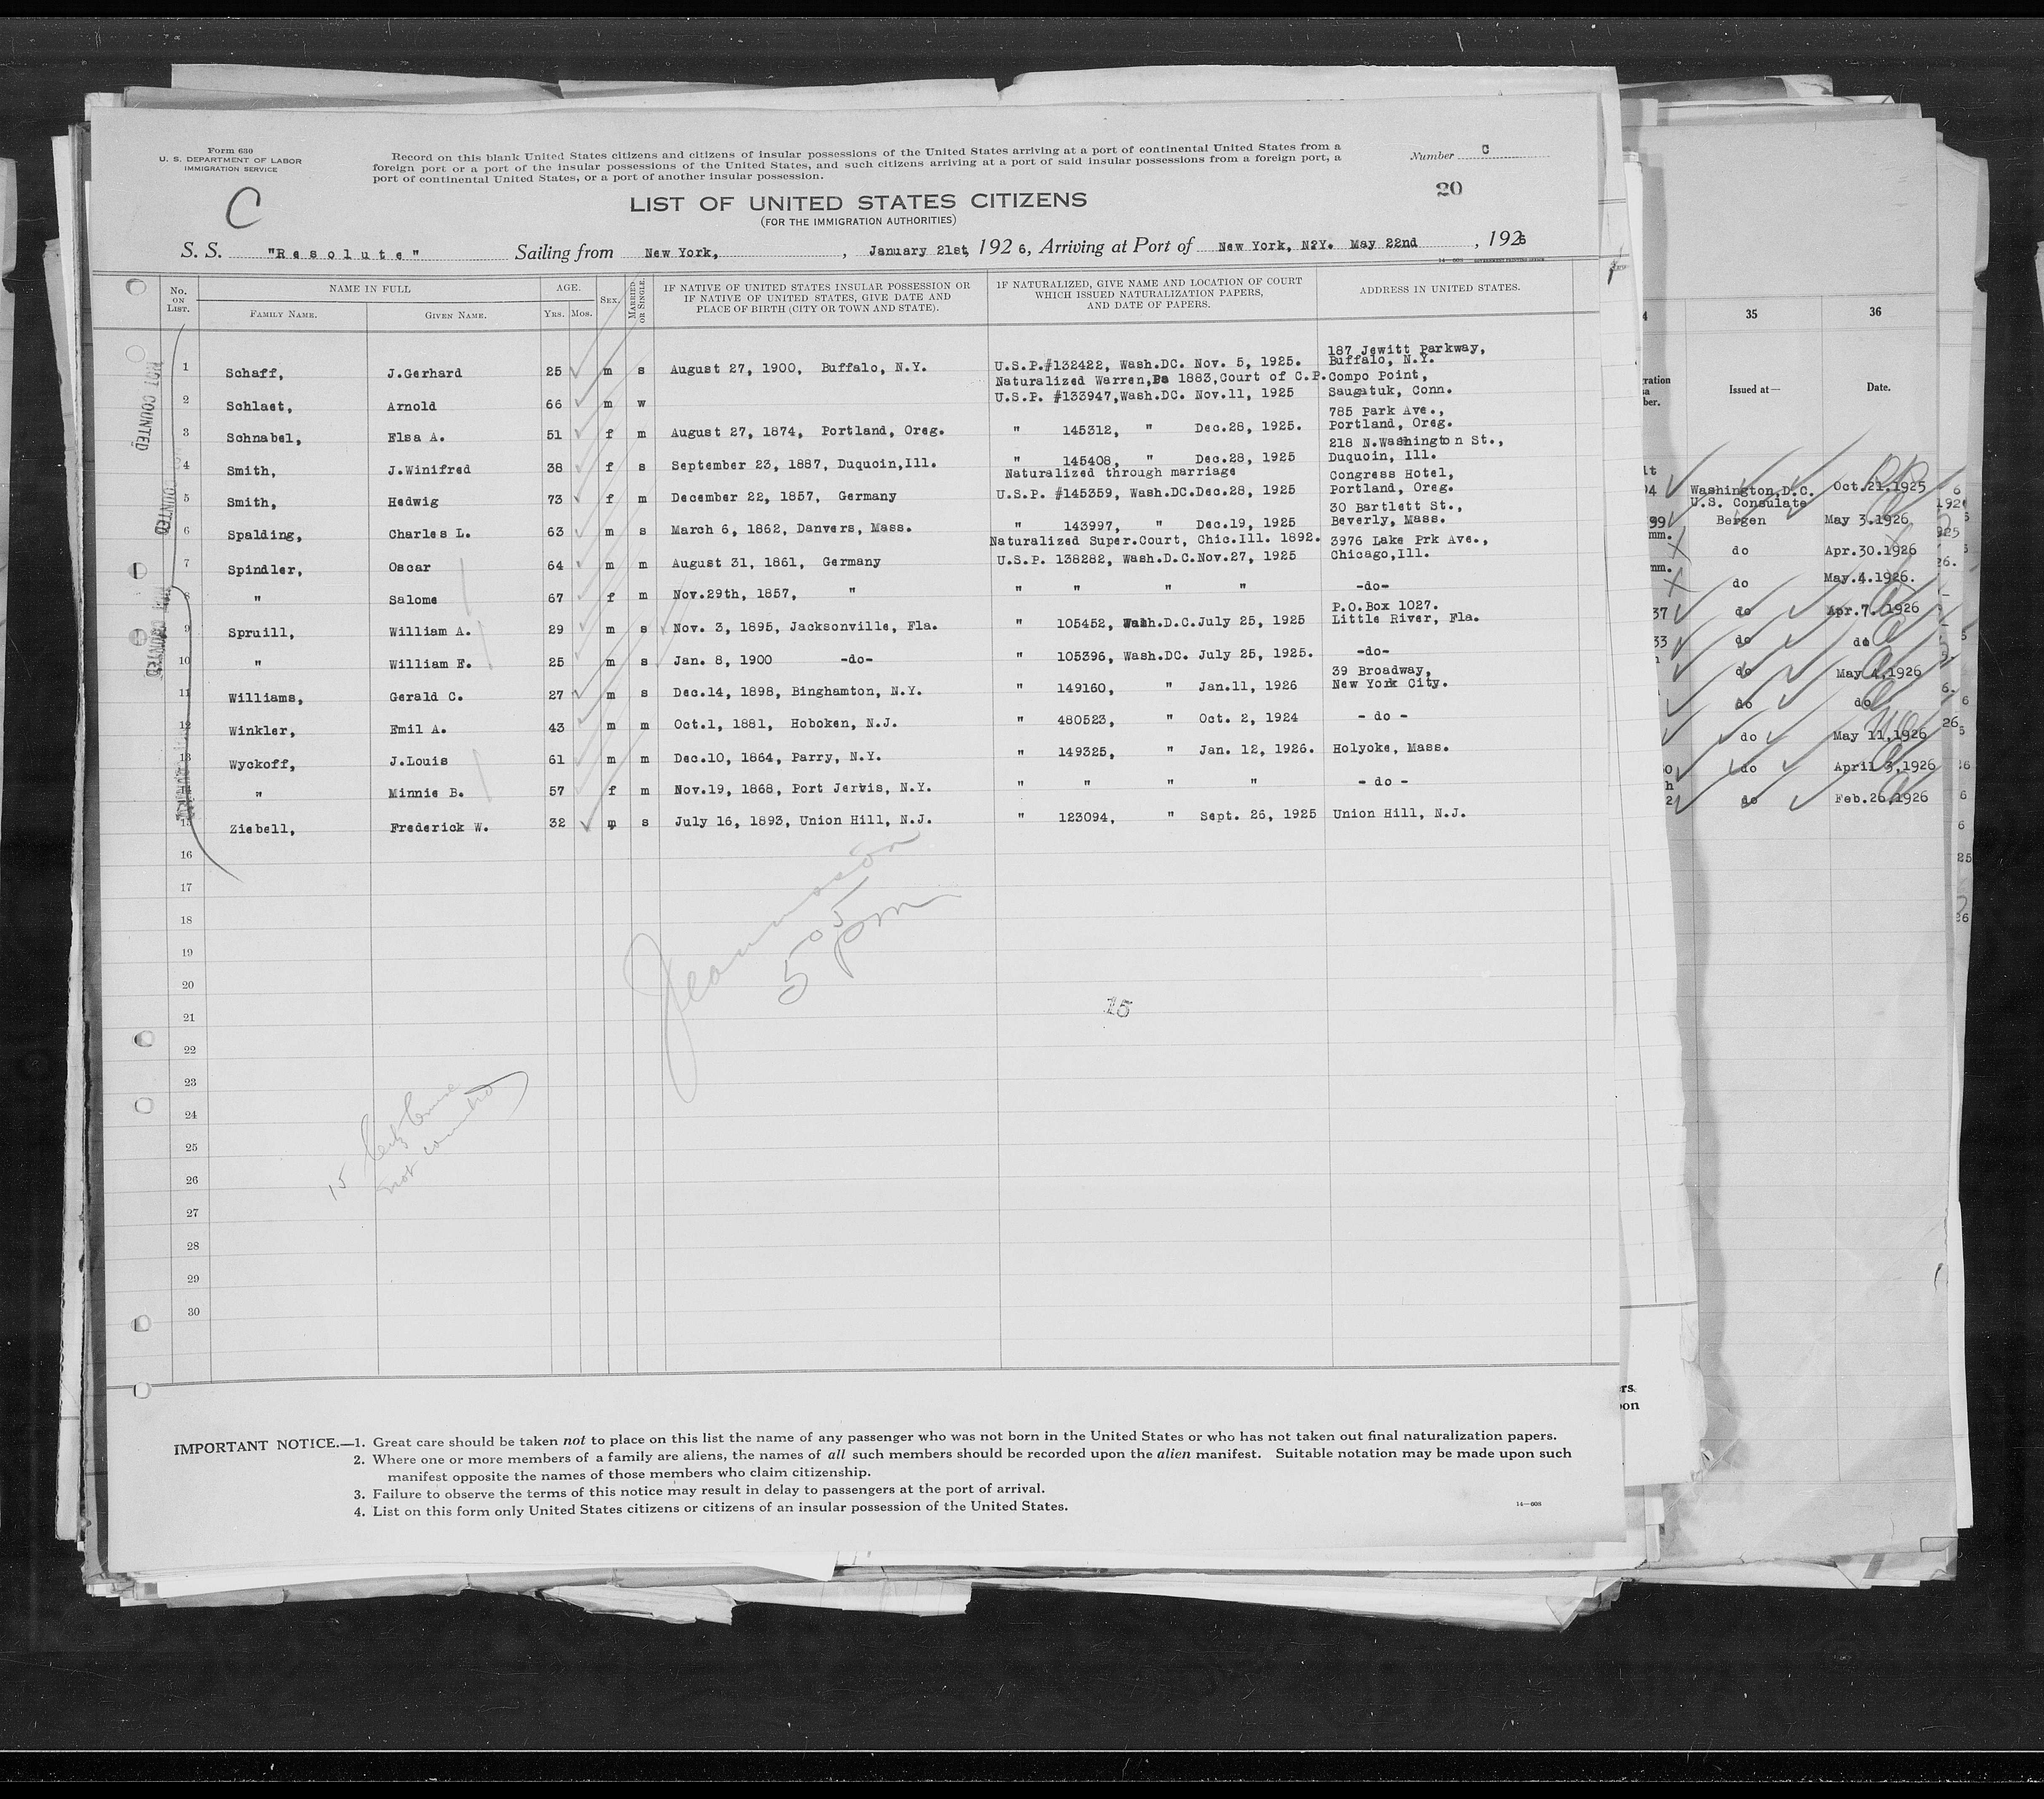 Form 630
U. S. DEPARTMENT OF LABOR
IMMIGRATION SERVICE
C
Record on this blank United States citizens and citizens of insular possessions of the United States arriving at a port of continental United States from a
foreign port or a port of the insular possessions of the United States, and such citizens arriving at a port of said insular possessions from a foreign port, a
port of continental United States, or a port of another insular possession.
Number C
20
LIST OF UNITED STATES CITIZENS
(FOR THE IMMIGRATION AUTHORITIES)
S. S. "Resolute" Sailing from New York, , January 21st, 192 6, Arriving at Port of New York, N.Y. May 22nd , 1926
No. ON LIST. NAME IN FULL AGE. SEX. MARRIED OR SINGLE. IF NATIVE OF UNITED STATES INSULAR POSSESSION OR IF NATIVE OF UNITED STATES, GIVE DATE AND PLACE OF BIRTH (CITY OR TOWN AND STATE). IF NATURALIZED, GIVE NAME AND LOCATION OF COURT WHICH ISSUED NATURALIZATION PAPERS, AND DATE OF PAPERS. ADDRESS IN UNITED STATES.
FAMILY NAME. GIVEN NAME. YRS. MOS.
187 Jewitt Parkway,
1 Schaff, J.Gerhard 25 m s August 27, 1900, Buffalo, N.Y. U.S.P.#132422, Wash.DC. Nov. 5, 1925. Buffalo, N.Y.
Naturalized Warren,Pa 1883,Court of C.P. Compo Point,
2 Schlaet, Arnold 66 m w U.S.P. #133947,Wash.DC. Nov.11, 1925 Saugatuk, Conn.
785 Park Ave.,
3 Schnabel, Elsa A. 51 f m August 27, 1874, Portland, Oreg. " 145312, " Dec.28, 1925. Portland, Oreg.
218 N.Washington St.,
4 Smith, J.Winifred 38 f s September 23, 1887, Duquoin,Ill. " 145408, " Dec.28, 1925 Duquoin, Ill.
Naturalized through marriage Congress Hotel,
5 Smith, Hedwig 73 f m December 22, 1857, Germany U.S.P. #145359, Wash.DC.Dec.28, 1925 Portland, Oreg.
30 Bartlett St.,
6 Spalding, Charles L. 63 m s March 6, 1862, Danvers, Mass. " 143997, " Dec.19, 1925 Beverly, Mass.
Naturalized Super.Court, Chic.Ill. 1892. 3976 Lake Prk Ave.,
7 Spindler, Oscar 64 m m August 31, 1861, Germany U.S.P. 138282, Wash.D.C.Nov.27, 1925 Chicago,Ill.
8 " Salome 67 f m Nov.29th, 1857, " " " " " -do-
P.O.Box 1027.
9 Spruill, William A. 29 m s Nov. 3, 1895, Jacksonville, Fla. " 105452, Wash.D.C.July 25, 1925 Little River, Fla.
10 " William E. 25 m s Jan. 8, 1900 -do- " 105396, Wash.DC. July 25, 1925. -do-
39 Broadway,
11 Williams, Gerald C. 27 m s Dec.14, 1898, Binghamton, N.Y. " 149160, " Jan.11, 1926 New York City.
12 Winkler, Emil A. 43 m m Oct.1, 1881, Hoboken, N.J. " 480523, " Oct. 2, 1924 - do -
13 Wyckoff, J.Louis 61 m m Dec.10, 1864, Parry, N.Y. " 149325, " Jan. 12, 1926. Holyoke, Mass.
14 " Minnie B. 57 f m Nov.19, 1868, Port Jervis, N.Y. " " " " - do -
15 Ziebell, Frederick W. 32 m s July 16, 1893, Union Hill, N.J. " 123094, " Sept. 26, 1925 Union Hill, N.J.
16
17
18
19
20
21
22
23
24
25
26
27
28
29
30
NOT COUNTED
NOT COUNTED
5 05 pm
15
15
not counted
IMPORTANT NOTICE.—1. Great care should be taken not to place on this list the name of any passenger who was not born in the United States or who has not taken out final naturalization papers.
2. Where one or more members of a family are aliens, the names of all such members should be recorded upon the alien manifest. Suitable notation may be made upon such
manifest opposite the names of those members who claim citizenship.
3. Failure to observe the terms of this notice may result in delay to passengers at the port of arrival.
4. List on this form only United States citizens or citizens of an insular possession of the United States.
14—608
35 36
Issued at— Date.
Washington,D.C. Oct.21.1925
U.S. Consulate
Bergen May 3.1926
do Apr.30.1926
do May.4.1926.
do Apr.7. 1926
do do
do May 4,1926
do do
do May 11,1926
do April 3,1926
do Feb.26,1926